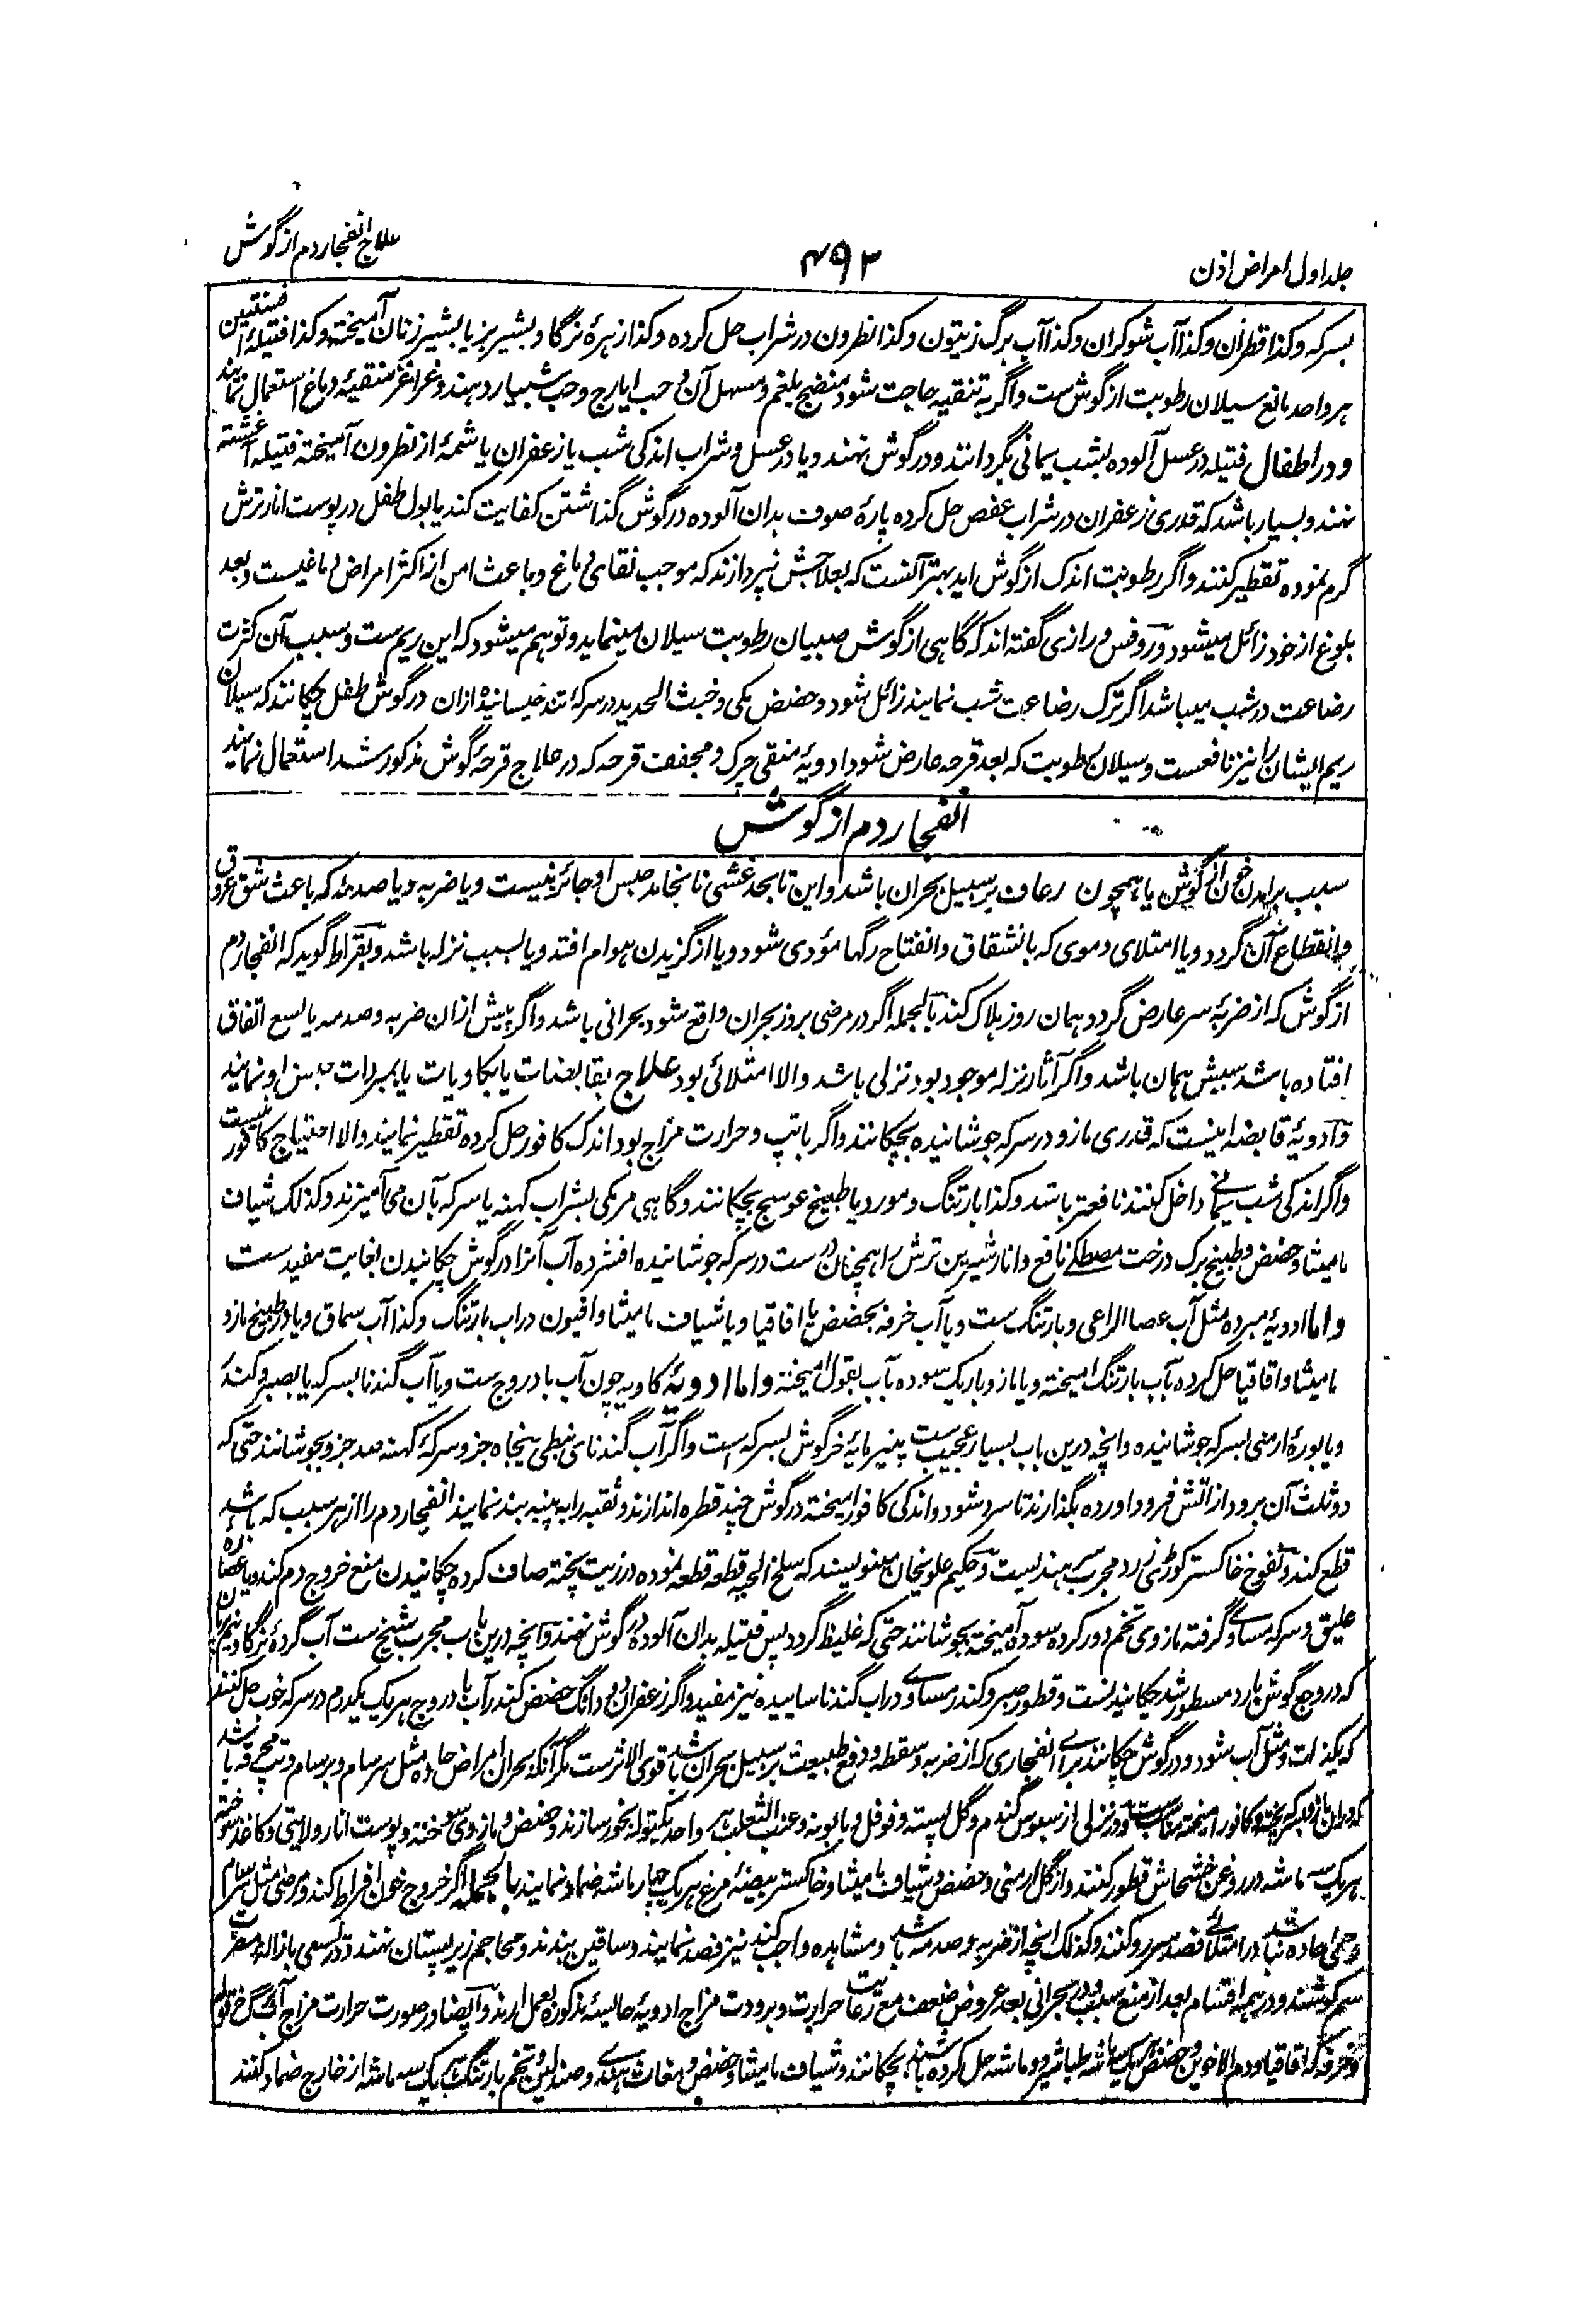 جلد اول امراض اذن
۴۹۲
علاج انفجار دم از گوش
بسرکه وکذا قطران وکذا آب شوکران وکذا آب برگ زیتون وکذا نطرون در شراب حل کرده وکذا زهرهٔ نرگاو بشیر بز یا بشیر زنان آمیخته وکذا فتیلهٔ افسنتین
هر واحد مانع سیلان رطوبت از گوش ست واگر به تنقیه حاجت شود منضج بلغم و مسهل آن و حب ایارج وحب شبیار دهند وغراغر منقیهٔ دماغ استعمال نمایند
ودر اطفال فتیله در عسل آلوده بشب یمانی بگردانند ودر گوش نهند ویا در عسل وشراب اندکی شب یا زعفران یا شمهٔ از نطرون آمیخته فتیله آغشته
نهند وبسیار باشد که قدری زعفران در شراب عفص حل کرده پارهٔ صوف بدان آلوده در گوش گذاشتن کفایت کند یا بول طفل در پوست انار ترش
گرم نموده تقطیر کنند واگر رطوبت اندک از گوش اید بهتر آنست که بعلاجش نپردازند که موجب نقای دماغ وباعث امن از اکثر امراض دماغیست وبعد
بلوغ از خود زائل میشود وروفس ورازی گفته اند که گاهی از گوش صبیان رطوبت سیلان مینماید وتوهم میشود که این ریم ست وسبب آن کثرت
رضاعت در شب میباشد اگر ترک رضاعت شب نمایند زائل شود وحضض مکی وخبث الحدید در سرکهٔ تند خیسانیده ازان در گوش طفل چکانند که سیلان
ریم ایشان را نیز نافعست وسیلان رطوبت که بعد قرحه عارض شود ادویهٔ منقی چرک ومجفف قرحه که در علاج قرحهٔ گوش مذکور شد استعمال نمایند
انفجار دم از گوش
سبب برامدن خون از گوش یا همچون رعاف بر سبیل بحران باشد واین تا بحد غشی نانجامد حبس او جائز نیست ویا ضربه ویا صدمه که باعث شق عروق
وانقطاع آن گردد ویا امتلای دموی که بانشقاق وانفتاح رگها مؤدی شود ویا از گزیدن هوام افتد ویا بسبب نزله باشد وبقراط گوید که انفجار دم
از گوش که از ضربهٔ سر عارض گردد همان روز هلاک کند بالجمله اگر در مرضی بروز بحران واقع شود بحرانی باشد واگر پیش ازان ضربه وصدمه یا لسع اتفاق
افتاده باشد سببش همان باشد واگر آثار نزله موجود بود نزلی باشد والا امتلائی بود علاج بقابضات یا بکاویات یا بمبردات حبس او نمایند
وادویهٔ قابضه اینست که قدری مازو در سرکه جوشانیده بچکانند واگر با تپ وحرارت مزاج بود اندک کافور حل کرده تقطیر نمایند والا احتیاج کافور نیست
واگر اندکی شب یمانی داخل کنند نافعتر باشد وکذا بارتنگ ومورد یا طبیخ عوسج بچکانند وگاهی مر مکی بشراب کهنه یا سرکه بآن می آمیزند وکذلک شیاف
مامیثا وحضض وطبیخ برگ درخت مصطکی نافع وانار شیرین ترش را همچنان درست در سرکه جوشانیده افشرده آب آنرا در گوش چکانیدن بغایت مفیدست
واما ادویهٔ مبرده مثل آب عصا الراعی وبارتنگ ست ویا آب خرفه بحضض یا اقاقیا ویا شیاف مامیثا وافیون دراب بارتنگ وکذا آب سماق ویا در طبیخ مازو
مامیثا واقاقیا حل کرده بآب بارتنگ امیخته ویا مازو باریک سوده بآب بقول امیخته واما ادویهٔ کاویه چون آب بادروج ست ویا آب گندنا بسرکه یا بصبر وکندر
ویا بورهٔ ارمنی بسرکه جوشانیده وانچه درین باب بسیار عجیب ست پنیرمایهٔ خرگوش بسرکه است واگر آب گندنای نبطی پنجاه جزو سرکهٔ کهنه صد جزو بجوشانند حتی که
دو ثلث آن برود از آتش فرود اورده بگذارند تا سرد شود واندکی کافور امیخته در گوش چند قطره اندازند وثقبه را به پنبه بند نمایند انفجار دم را از هر سبب که باشد
قطع کند ونفوخ خاکستر کوڑی زرد مجرب هندیست وحکیم علویخان مینویسند که سلخ الحیه قطعه قطعه نموده در زیت پخته صاف کرده چکانیدن منع خروج دم کند ویا عصارهٔ
علیق وسرکه مساوی گرفته مازوی تخم دور کرده سوده آمیخته بجوشانند حتی که غلیظ گردد پس فتیله بدان آلوده در گوش نهند وانچه درین باب مجرب شیخ ست آب گردهٔ نرگاو
که در وجع گوش بارد مسطور شد چکانیدنست وقطور صبر وکندر مساوی دراب گندنا ساییده نیز مفید واگر زعفران دو دانگ حضض کندر آب بادروج هر یک یکدرم در سرکه خوب حل کنند
که یکذات ومثل آب شود ودر گوش چکانند برای انفجاری که از ضربه وسقطه ودفع طبیعت بر سبیل بحران باشد قوی الاثرست مگر آنکه بحران امراض حاده مثل سرسام وبرسام وتپ محرقه باشد
که دران مازو بسرکه پخته وکافور امیخته مناسب ست ودر نزلی از سبوس گندم وگل پسته وفوفل وبابونه وعنب الثعلب هر واحد یکتوله بخور سازند وحضض ومازوی سوخته وپوست انار ولایتی وکاغذ سوخته
هر یک سه ماشه در روغن خشخاش قطور کنند واز گل ارمنی وحضض وشیاف مامیثا وخاکستر بیضهٔ مرغ هر یک چهار ماشه ضماد نمایند بالجمله اگر خروج خون افراط کند ومرض مثل سرسام
وحمی حاده نباشد در امتلائی فصد سررو کنند وکذلک انچه از ضربه وصدمه باشد ومشاهده واجب کند نیز فصد نمایند وساقین ببندند ومحاجم زیر پستان نهند ودر لسعی بازالهٔ مضرت
سم کوشند ودر همه اقسام بعد از منع سبب ودر بحرانی بعد عروض ضعف مع رعایت حرارت وبرودت مزاج ادویهٔ حابسهٔ مذکوره بعمل ارند وایضا در صورت حرارت مزاج
اقاقیا ودم الاخوین وحضض هر یک ماشه طباشیر دو ماشه حل کرده بچکانند وشیاف مامیثا وحضض ومغاث هندی وصندلین وتخم بارتنگ هر یک سه ماشه از خارج ضماد کنند